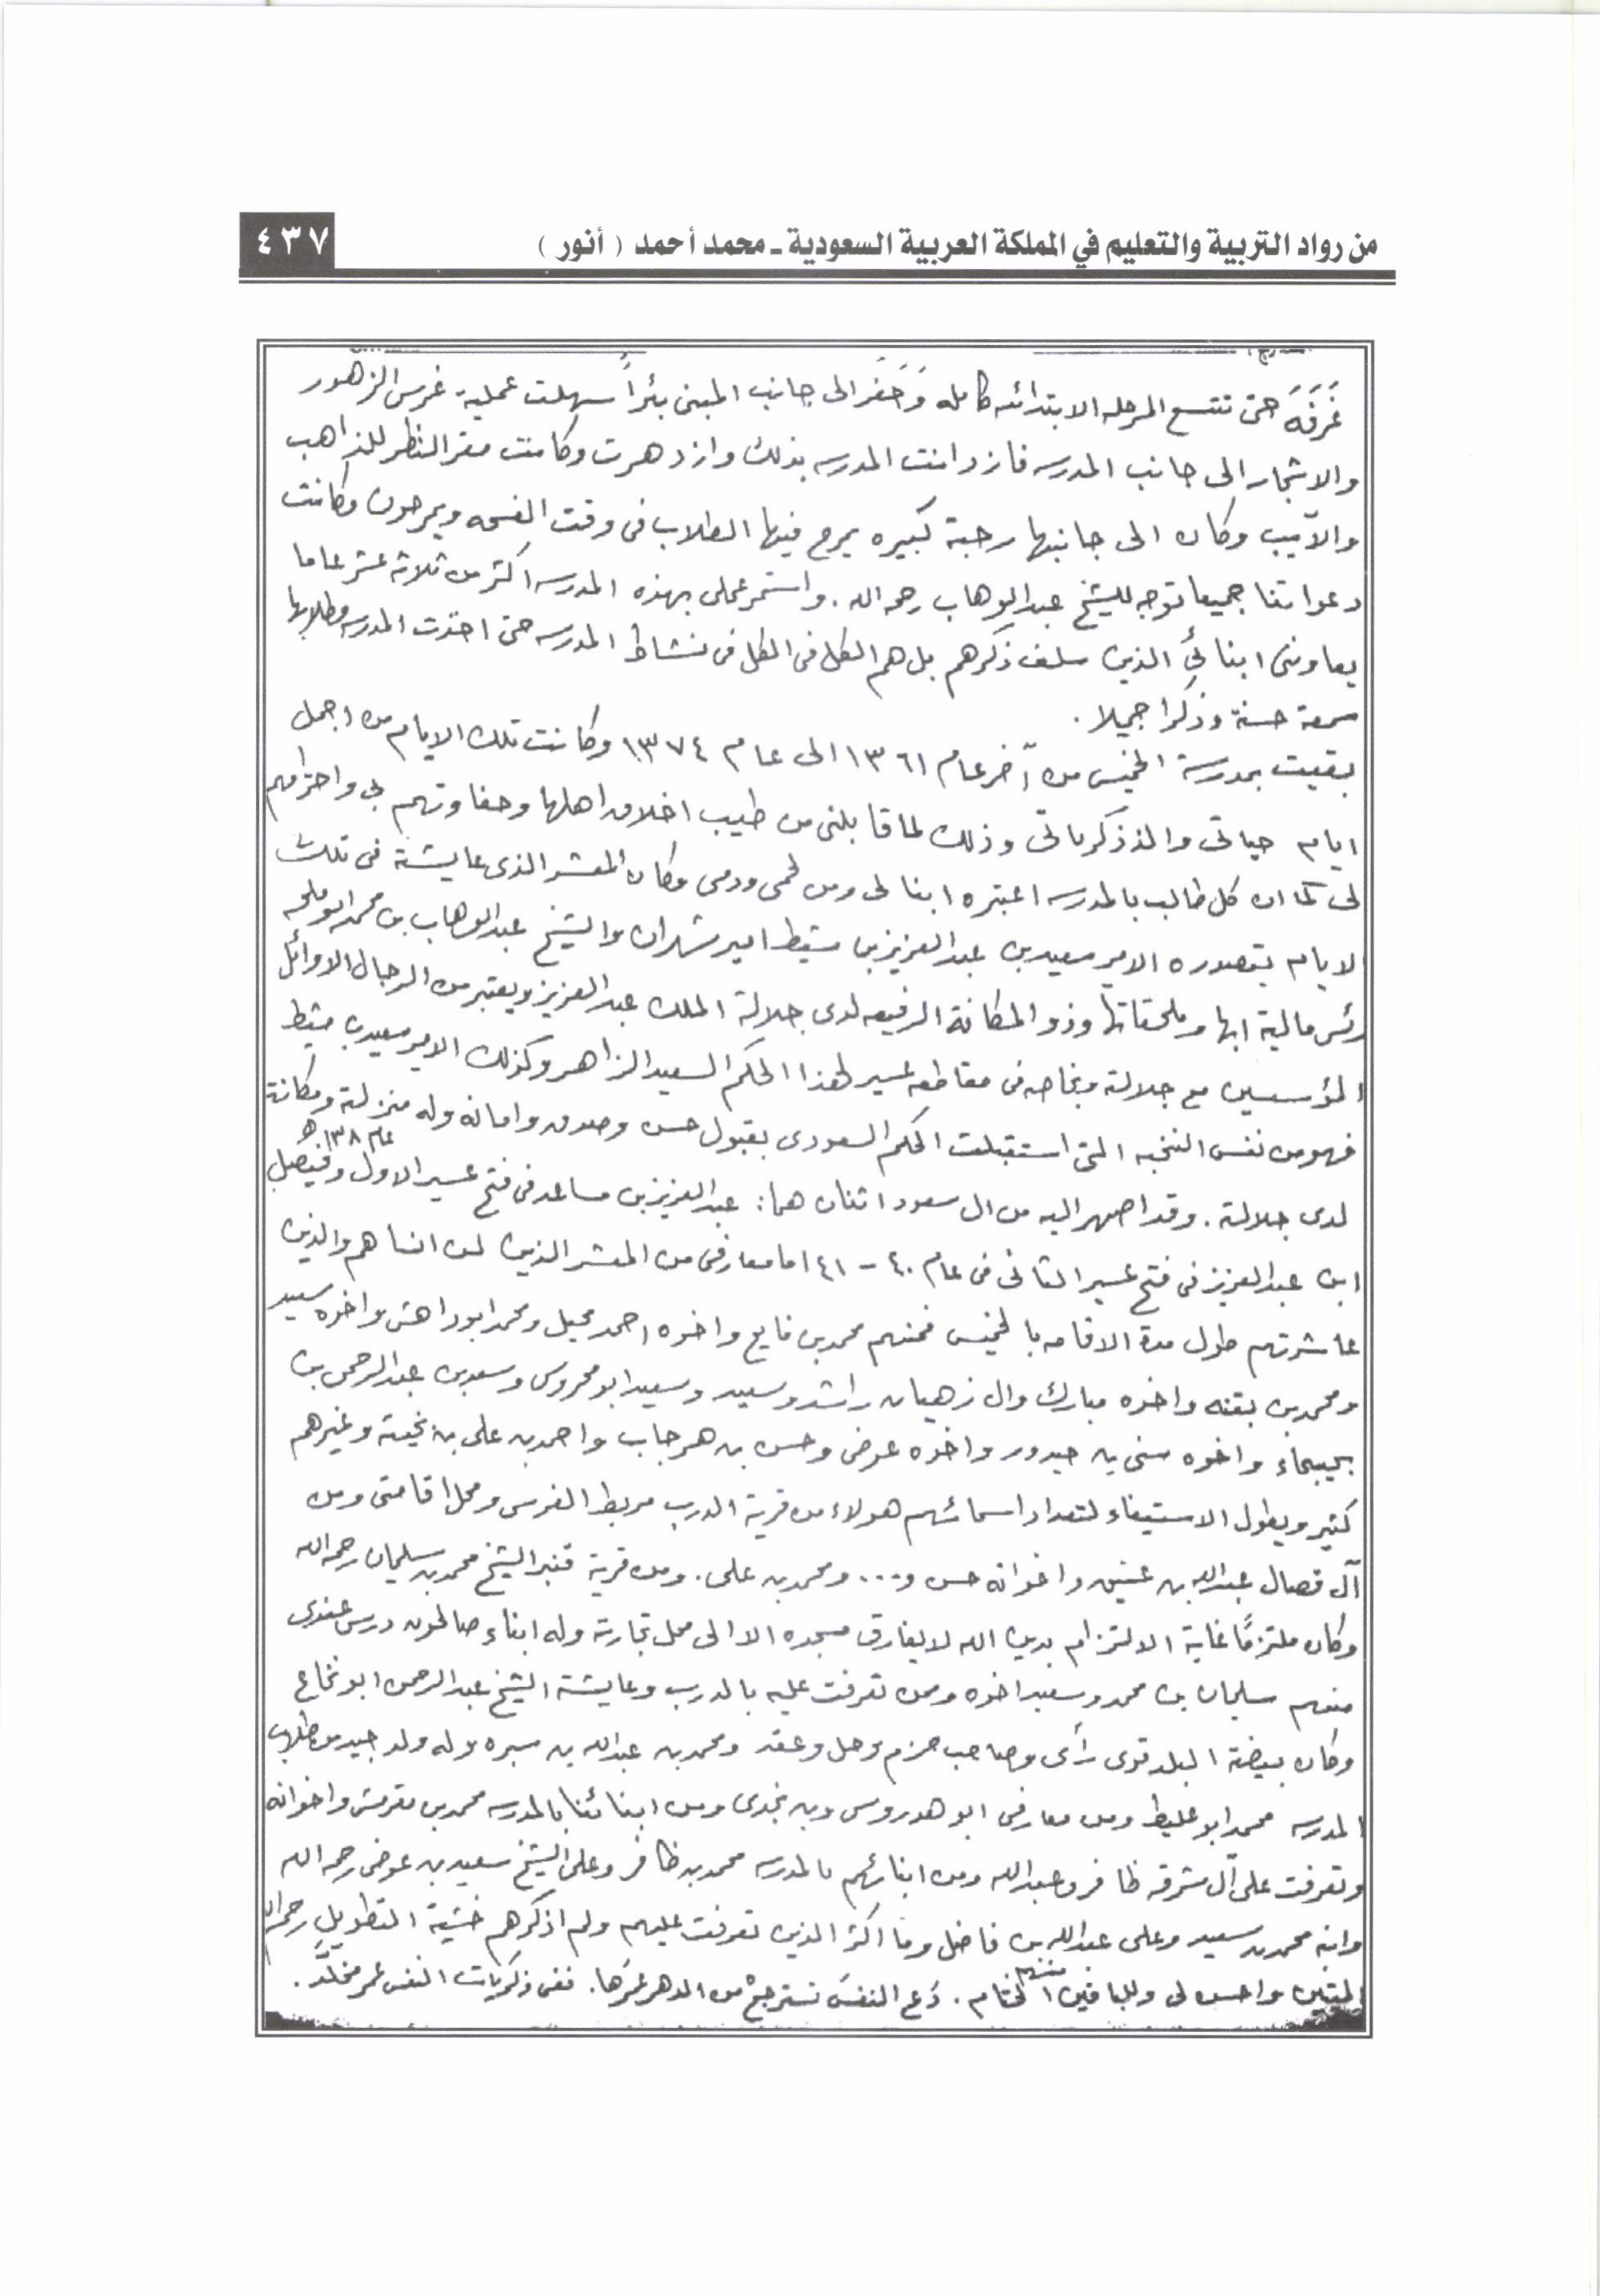 من رواد التربية والتعليم في المملكة العربية السعودية ـ محمد أحمد ( أنور )
٤٣٧
غَرَفَهَ حتى تتسع المرحله الابتدائه كامله وَحَفَر الى جانب المبنى بئراً سهلت عملية غرس الزهور
والاشجار الى جانب المدرسه فازدانت المدرسه بذلك وازدهرت وكانت مقر النظر للذاهب
والآيب وكان الى جانبها رحبة كبيره يمرح فيها الطلاب فى وقت الفسحه ويمرحون وكانت
دعواتنا جميعا توجه للشيخ عبدالوهاب رحمه الله . واستمر عملى بهذه المدرسه اكثر من ثلاثة عشر عاما
يعاوننى ابنائي الذين سلف ذكرهم بل هم الكل فى الكل فى نشاط المدرسه حتى اخذت المدرسه وطلابها
سمعة حسنة وذكرا جميلا .
بقيت بمدرسة الخميس من آخر عام ١٣٦١ الى عام ١٣٧٤ وكانت تلك الايام من اجمل
ايام حياتى والذ ذكرياتى وذلك لما قابلنى من طيب اخلاق اهلها وحفاوتهم بى واحترامهم
لى كما ان كل طالب بالمدرسه اعتبره ابنا لى ومن لحمى ودمى وكان المعشر الذى عايشته فى تلك
الايام يتصدره الامير سعيد بن عبدالعزيز بن مشيط امير شهران والشيخ عبدالوهاب بن محمد ابو ملحه
رئس مالية ابها وملحقاتها وذو المكانة الرفيعه لدى جلالة الملك عبدالعزيز ويعتبر من الرجال الاوائل
المؤسسين مع جلالته وبخاصه فى مقاطعه عسير لهذا الحكم السعيد الزاهر وكذلك الامير سعيد بن مشيط
فهو من نفس النخبه التى استقبلت الحكم السعودى بقبول حسن وصدق وامانه وله منزلة ومكانة
لدى جلالته . وقد اصهر اليه من ال سعود اثنان هما : عبدالعزيز بن مساعد فى فتح عسير الاول عام ١٣٨ هـ وفيصل
ابن عبدالعزيز فى فتح عسير الثانى فى عام ٤٠ - ٤١ اما معارفى من المعشر الذين لن انساهم والذين
عاشرتهم طول مدة الاقامه بالخميس فمنهم محمد بن فايع واخوه احمد محيل ومحمد ابو داهش واخوه سعيد
ومحمد بن بقنه واخوه مبارك وال زهيان راشد وسعيد وسعيد ابو محروس وسعد بن عبدالرحمن بن
واخوه سنى بن حيدور واخوه عوض وحسن بن هرجاب واحمد بن على بن نخيته وغيرهم
كثير ويطول الاستيفاء لتعداد اسمائهم هولاء من قرية الدرب مربط الفرس ومحل اقامتى ومن
آل قصال عبدالله بن عشيق واخوانه حسن و... ومحمد بن على . ومن قرية قنبر الشيخ محمد بن سليمان رحمه الله
وكان ملتزمًا غاية الالتزام بدين الله لايفارق مسجده الا الى محل تجارته وله ابناء صالحون درس عندى
منهم سليمان بن محمد وسعيد اخوه وممن تعرفت عليه بالدرب وعايشته الشيخ عبدالرحمن ابو نخاع
وكان بيضة البلد قوى رأى وصاحب حزم وحل وعقد ومحمد بن عبدالله بن سبره وله ولد جيد من طلاب
المدرسه محمد ابو غليط ومن معارفى ابو هدروس وبن نجدى ومن ابنائنا بالمدرسه محمد بن مقرمش واخوانه
وتعرفت على آل مشرقه ظافر وعبدالله ومن ابنائهم بالمدرسه محمد بن ظافر وعلى الشيخ سعيد بن عوض رحمه الله
وابنه محمد بن سعيد وعلى عبدالله بن فاضل وما اكثر الذين تعرفت عليهم ولم اذكرهم خشية التطويل رحم الله
الميتين منهم واحسن لى وللباقين الختام . دَع النفسَ تسترجعْ من الدهر عُمرَها . ففى ذكريات النفس عمر مخلَّد .